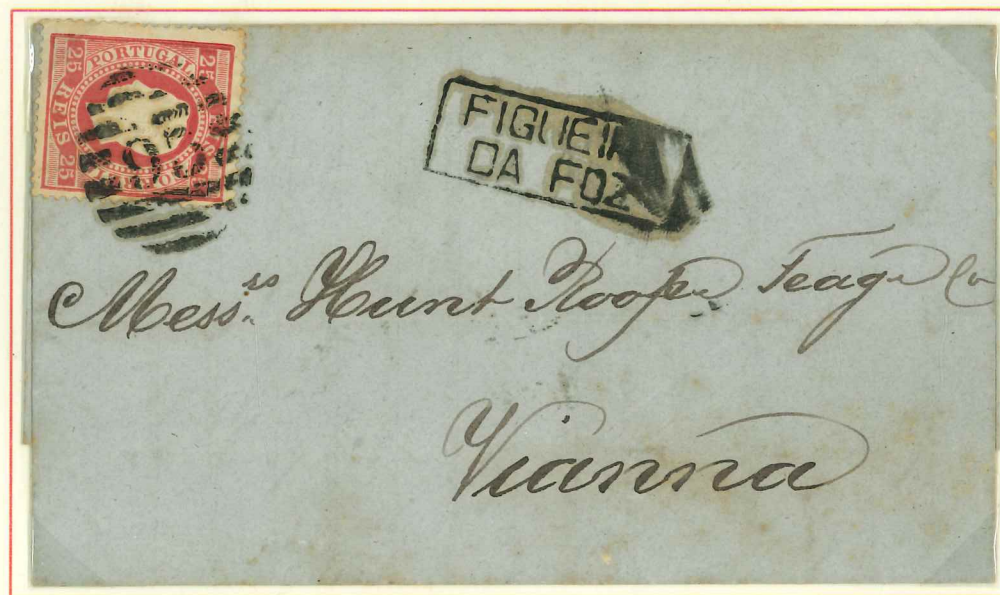 PORTUGAL
25 25
REIS
25 25
FIGUEIR
DA FOZ
Mess.rs Hunt Roope Teage Co
Vianna